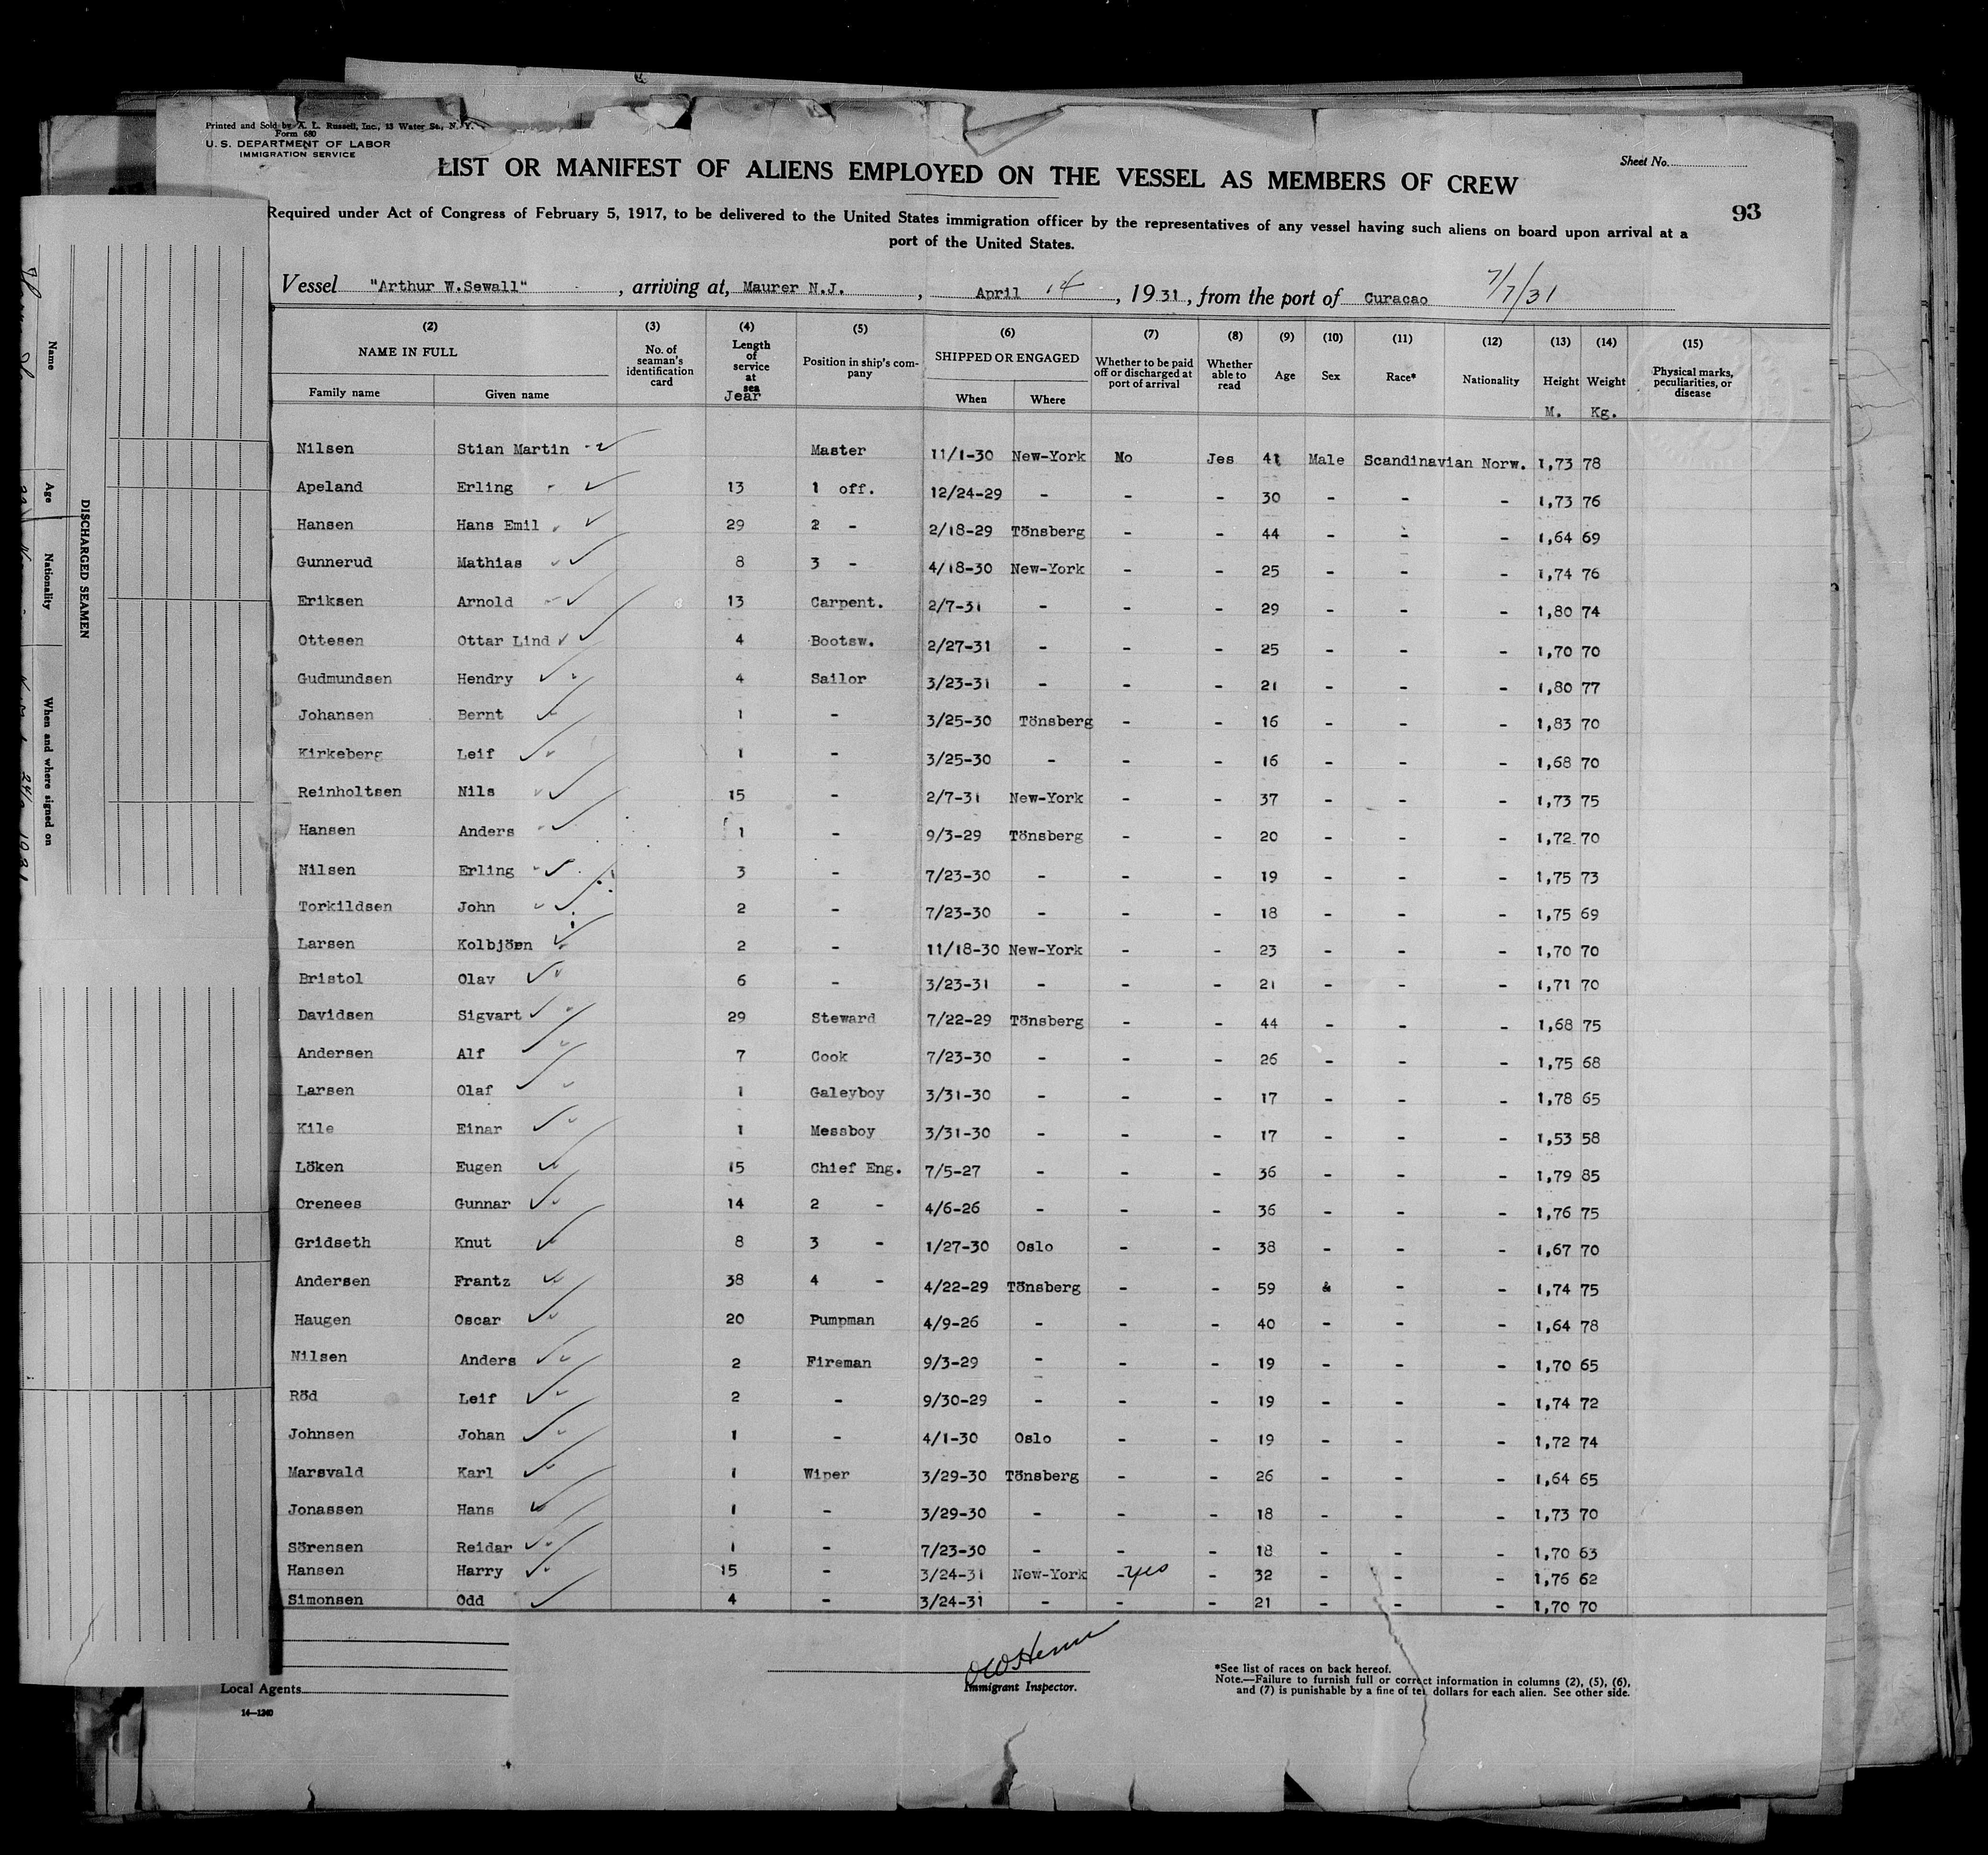 Printed and Sold by A. L. Russell, Inc., 13 Water St., N. Y.
Form 680
U. S. DEPARTMENT OF LABOR
IMMIGRATION SERVICE
Sheet No.
LIST OR MANIFEST OF ALIENS EMPLOYED ON THE VESSEL AS MEMBERS OF CREW
93
Required under Act of Congress of February 5, 1917, to be delivered to the United States immigration officer by the representatives of any vessel having such aliens on board upon arrival at a
port of the United States.
7/7/31
Vessel "Arthur W.Sewall", arriving at, Maurer N.J., April 14, 1931, from the port of Curacao
(2) (3) (4) (5) (6) (7) (8) (9) (10) (11) (12) (13) (14) (15)
NAME IN FULL
Family name Given name
No. of seaman's identification card
Length of service at sea
Jear
Position in ship's company
SHIPPED OR ENGAGED
When Where
Whether to be paid off or discharged at port of arrival
Whether able to read
Age Sex Race* Nationality Height Weight
Physical marks, peculiarities, or disease
M. Kg.
Nilsen Stian Martin Master 11/1-30 New-York No Jes 41 Male Scandinavian Norw. 1,73 78
Apeland Erling 13 1 off. 12/24-29 - - - 30 - - - 1,73 76
Hansen Hans Emil 29 2 - 2/18-29 Tönsberg - - 44 - - - 1,64 69
Gunnerud Mathias 8 3 - 4/18-30 New-York - - 25 - - - 1,74 76
Eriksen Arnold 13 Carpent. 2/7-31 - - - 29 - - - 1,80 74
Ottesen Ottar Lind 4 Bootsw. 2/27-31 - - - 25 - - - 1,70 70
Gudmundsen Hendry 4 Sailor 3/23-31 - - - 21 - - - 1,80 77
Johansen Bernt 1 - 3/25-30 Tönsberg - - 16 - - - 1,83 70
Kirkeberg Leif 1 - 3/25-30 - - - 16 - - - 1,68 70
Reinholtsen Nils 15 - 2/7-31 New-York - - 37 - - - 1,73 75
Hansen Anders 1 - 9/3-29 Tönsberg - - 20 - - - 1,72 70
Nilsen Erling 3 - 7/23-30 - - - 19 - - - 1,75 73
Torkildsen John 2 - 7/23-30 - - - 18 - - - 1,75 69
Larsen Kolbjörn 2 - 11/18-30 New-York - - 23 - - - 1,70 70
Bristol Olav 6 - 3/23-31 - - - 21 - - - 1,71 70
Davidsen Sigvart 29 Steward 7/22-29 Tönsberg - - 44 - - - 1,68 75
Andersen Alf 7 Cook 7/23-30 - - - 26 - - - 1,75 68
Larsen Olaf 1 Galeyboy 3/31-30 - - - 17 - - - 1,78 65
Kile Einar 1 Messboy 3/31-30 - - - 17 - - - 1,53 58
Löken Eugen 15 Chief Eng. 7/5-27 - - - 36 - - - 1,79 85
Orenees Gunnar 14 2 - 4/6-26 - - - 36 - - - 1,76 75
Gridseth Knut 8 3 - 1/27-30 Oslo - - 38 - - - 1,67 70
Andersen Frantz 38 4 - 4/22-29 Tönsberg - - 59 & - - 1,74 75
Haugen Oscar 20 Pumpman 4/9-26 - - - 40 - - - 1,64 78
Nilsen Anders 2 Fireman 9/3-29 - - - 19 - - - 1,70 65
Röd Leif 2 - 9/30-29 - - - 19 - - - 1,74 72
Johnsen Johan 1 - 4/1-30 Oslo - - 19 - - - 1,72 74
Marsvald Karl 1 Wiper 3/29-30 Tönsberg - - 26 - - - 1,64 65
Jonassen Hans 1 - 3/29-30 - - - 18 - - - 1,73 70
Sörensen Reidar 1 - 7/23-30 - - - 18 - - - 1,70 63
Hansen Harry 15 - 3/24-31 New-York - yes - 32 - - - 1,76 62
Simonsen Odd 4 - 3/24-31 - - - 21 - - - 1,70 70
Local Agents
14-1240
Immigrant Inspector.
*See list of races on back hereof.
Note.—Failure to furnish full or correct information in columns (2), (5), (6),
and (7) is punishable by a fine of ten dollars for each alien. See other side.
DISCHARGED SEAMEN
Name Age Nationality When and where signed on